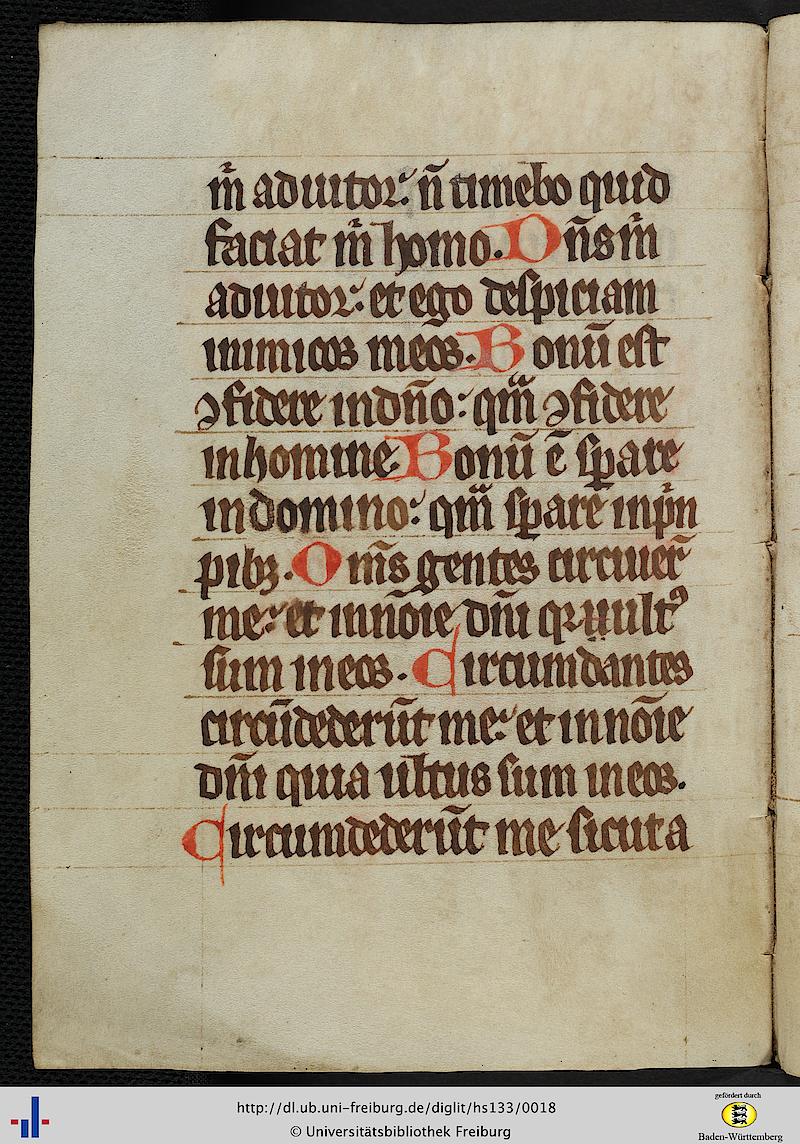 m̄ adiutor: n̄ timebo quid
faciat m̄ homo. Dn̄s m̄
adiutor: et ego despiciam
inimicos meos. Bonū est
ꝯfidere in dn̄o: qm̄ ꝯfidere
in homine. Bonū ē sꝑare
in domino: qm̄ sꝑare in pn̄
pibꝫ. Om̄s gentes circuier̄
me: et in nōīe dn̄i qꝛ ult᷒
sum in eos. Circumdantes
circūdederūt me: et in nōīe
dn̄i quia ultus sum in eos.
Circumdederūt me sicut a
http://dl.ub.uni-freiburg.de/diglit/hs133/0018
© Universitätsbibliothek Freiburg
gefördert durch
Baden-Württemberg